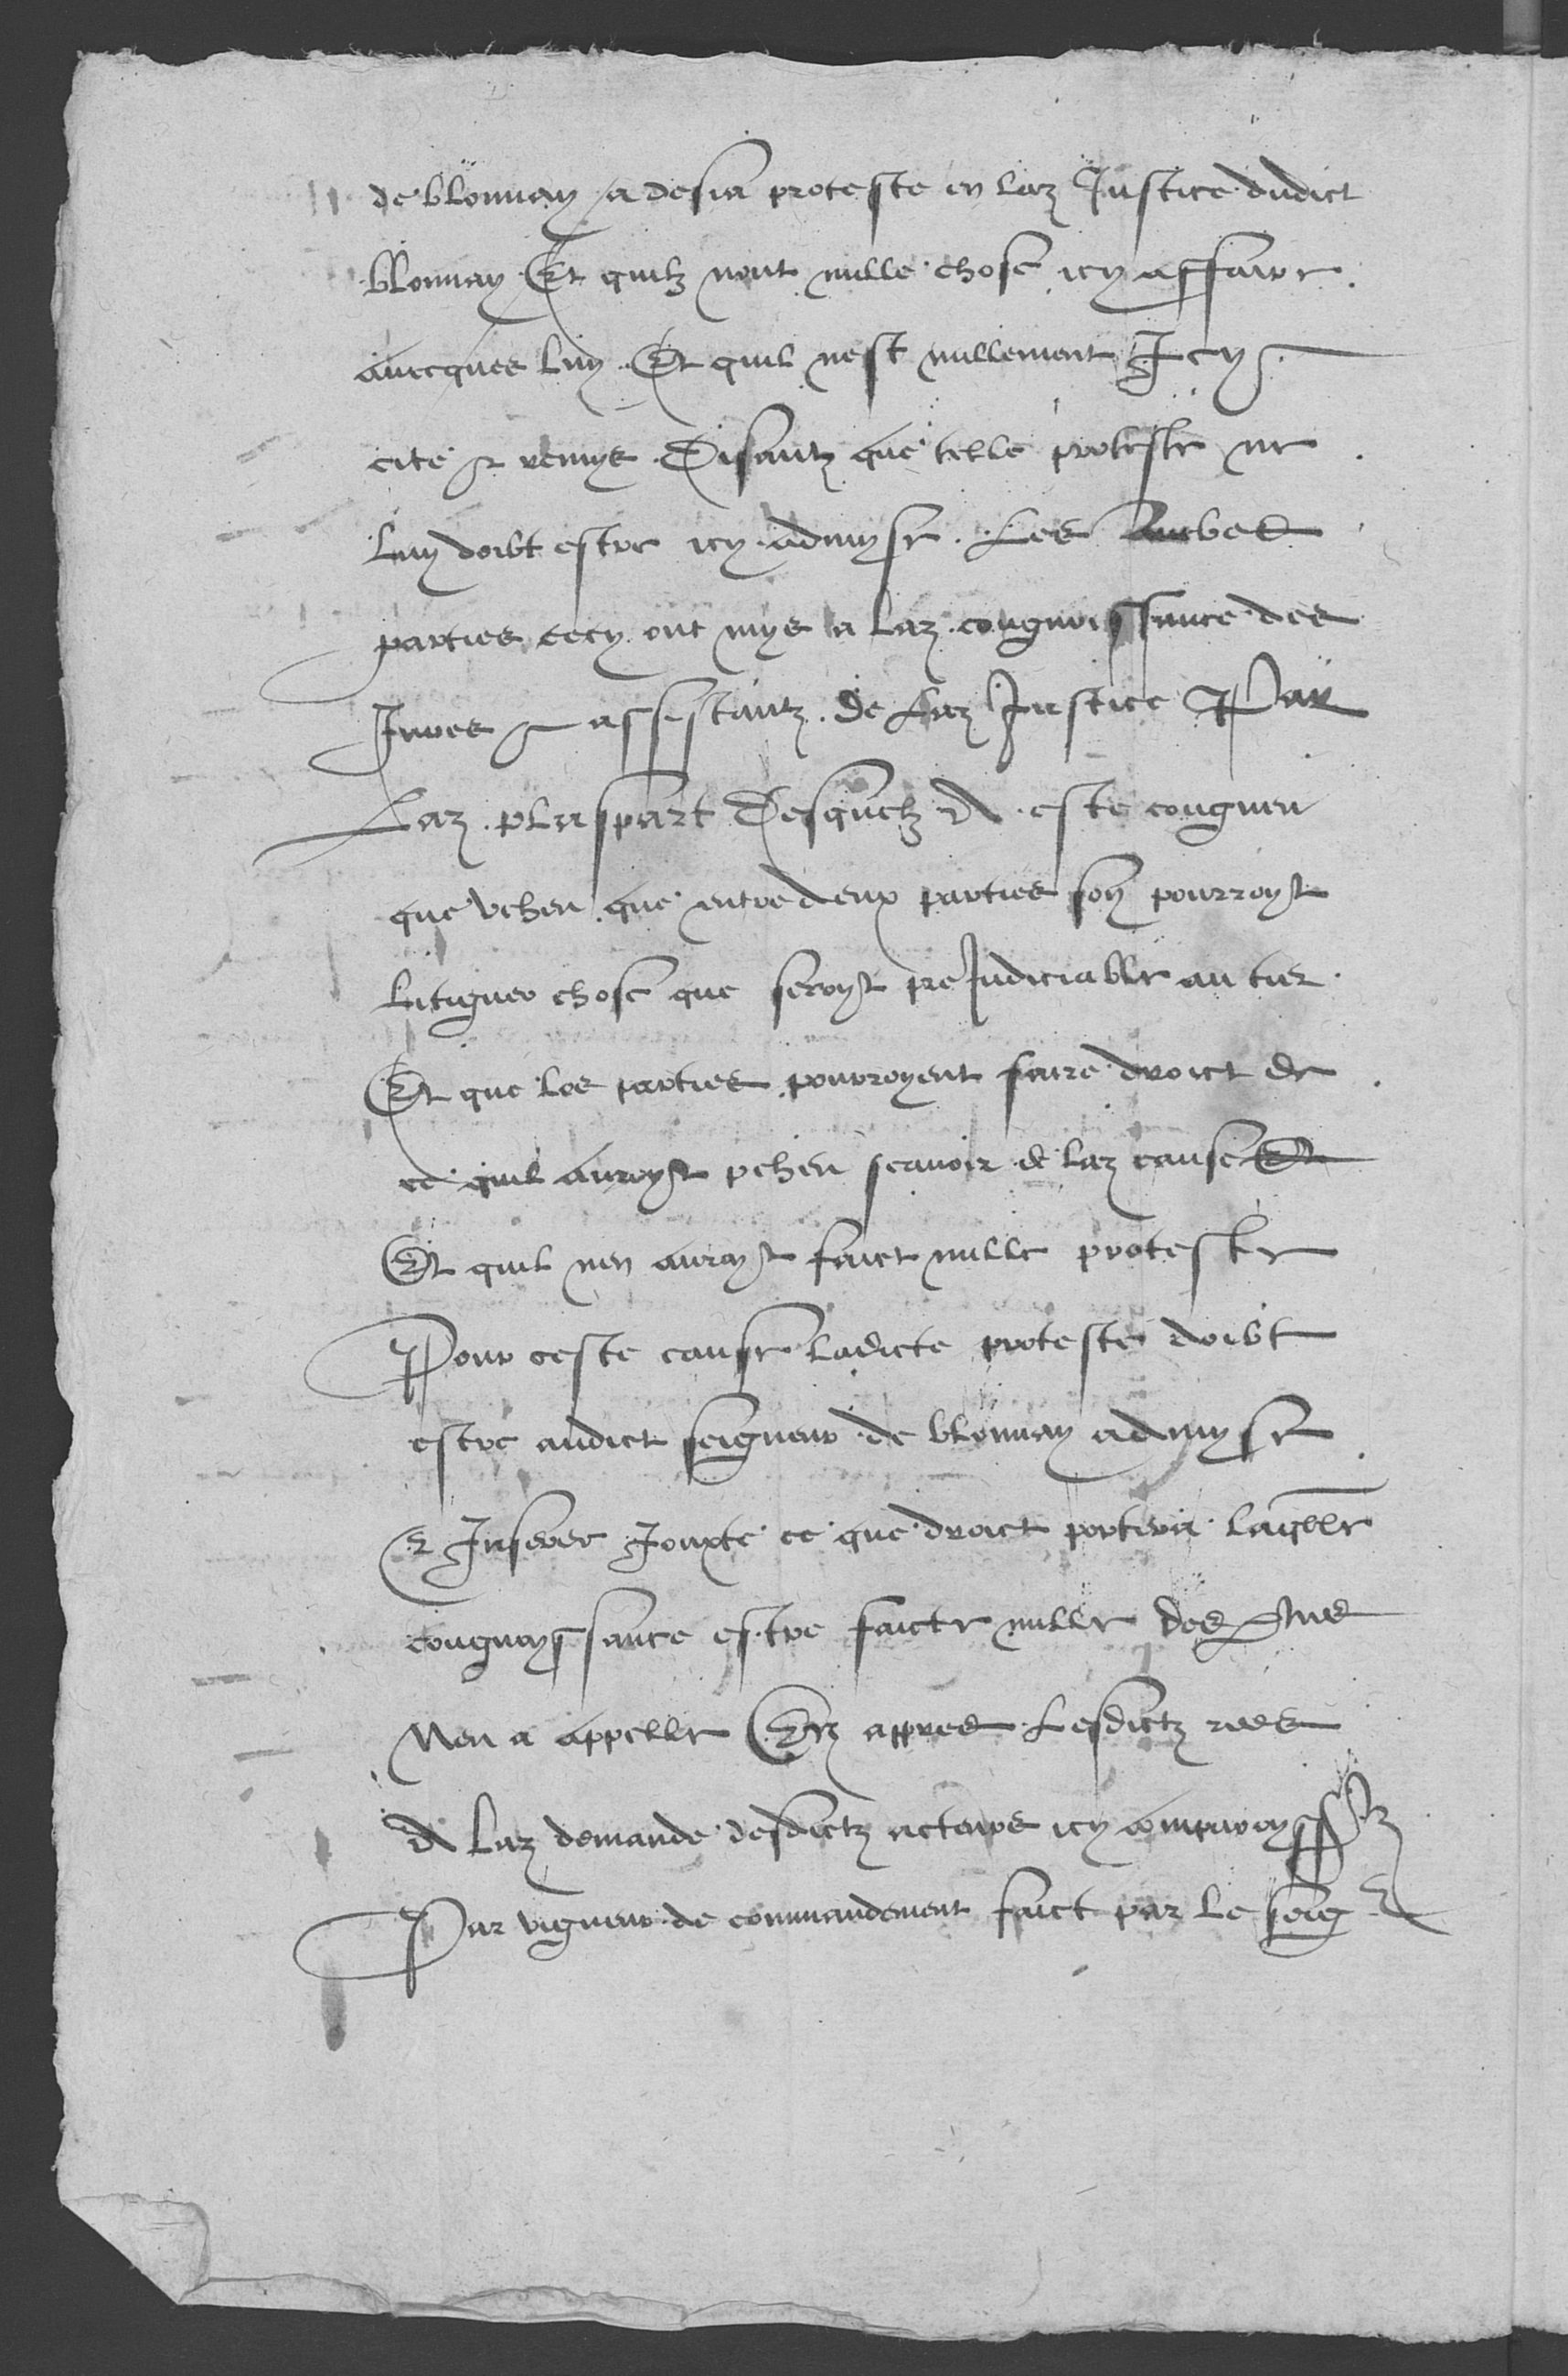 de blonnay a desia proteste en laz Justice dudict
blonnay Et quilz nont nulle chose icy affaire
avecques luy Et quil nest nullement Icy
cite & remys Disantz que telle proteste ne
luy doibt estre icy admyse Les ambes
parties cecy ont mys a laz congnoissance des
Jures & assistantz de laz Justice Par
Laz pluspart Desquelz A este congneu
que veheu que entre deux parties soy pourroyt
litiguer chose que seroyt preJudiciable au tier
Et que les parties pourroyent faire droict de
ce quil auroyt peheu scavoir de laz cause Et
Et quil nen auroyt faict nulle proteste
Pour ceste cause ladicte proteste doibt
estre audict seigneur de blonnay admyse
& Inserer Jouxte ce que droict portera laqlle
congnoyssance estre faicte nulle des
Nen a appelle Ery appres Lesdictz rees
A laz demande desdictz acteurs icy comparoyss
Par vigueur de commandement faict par le seig